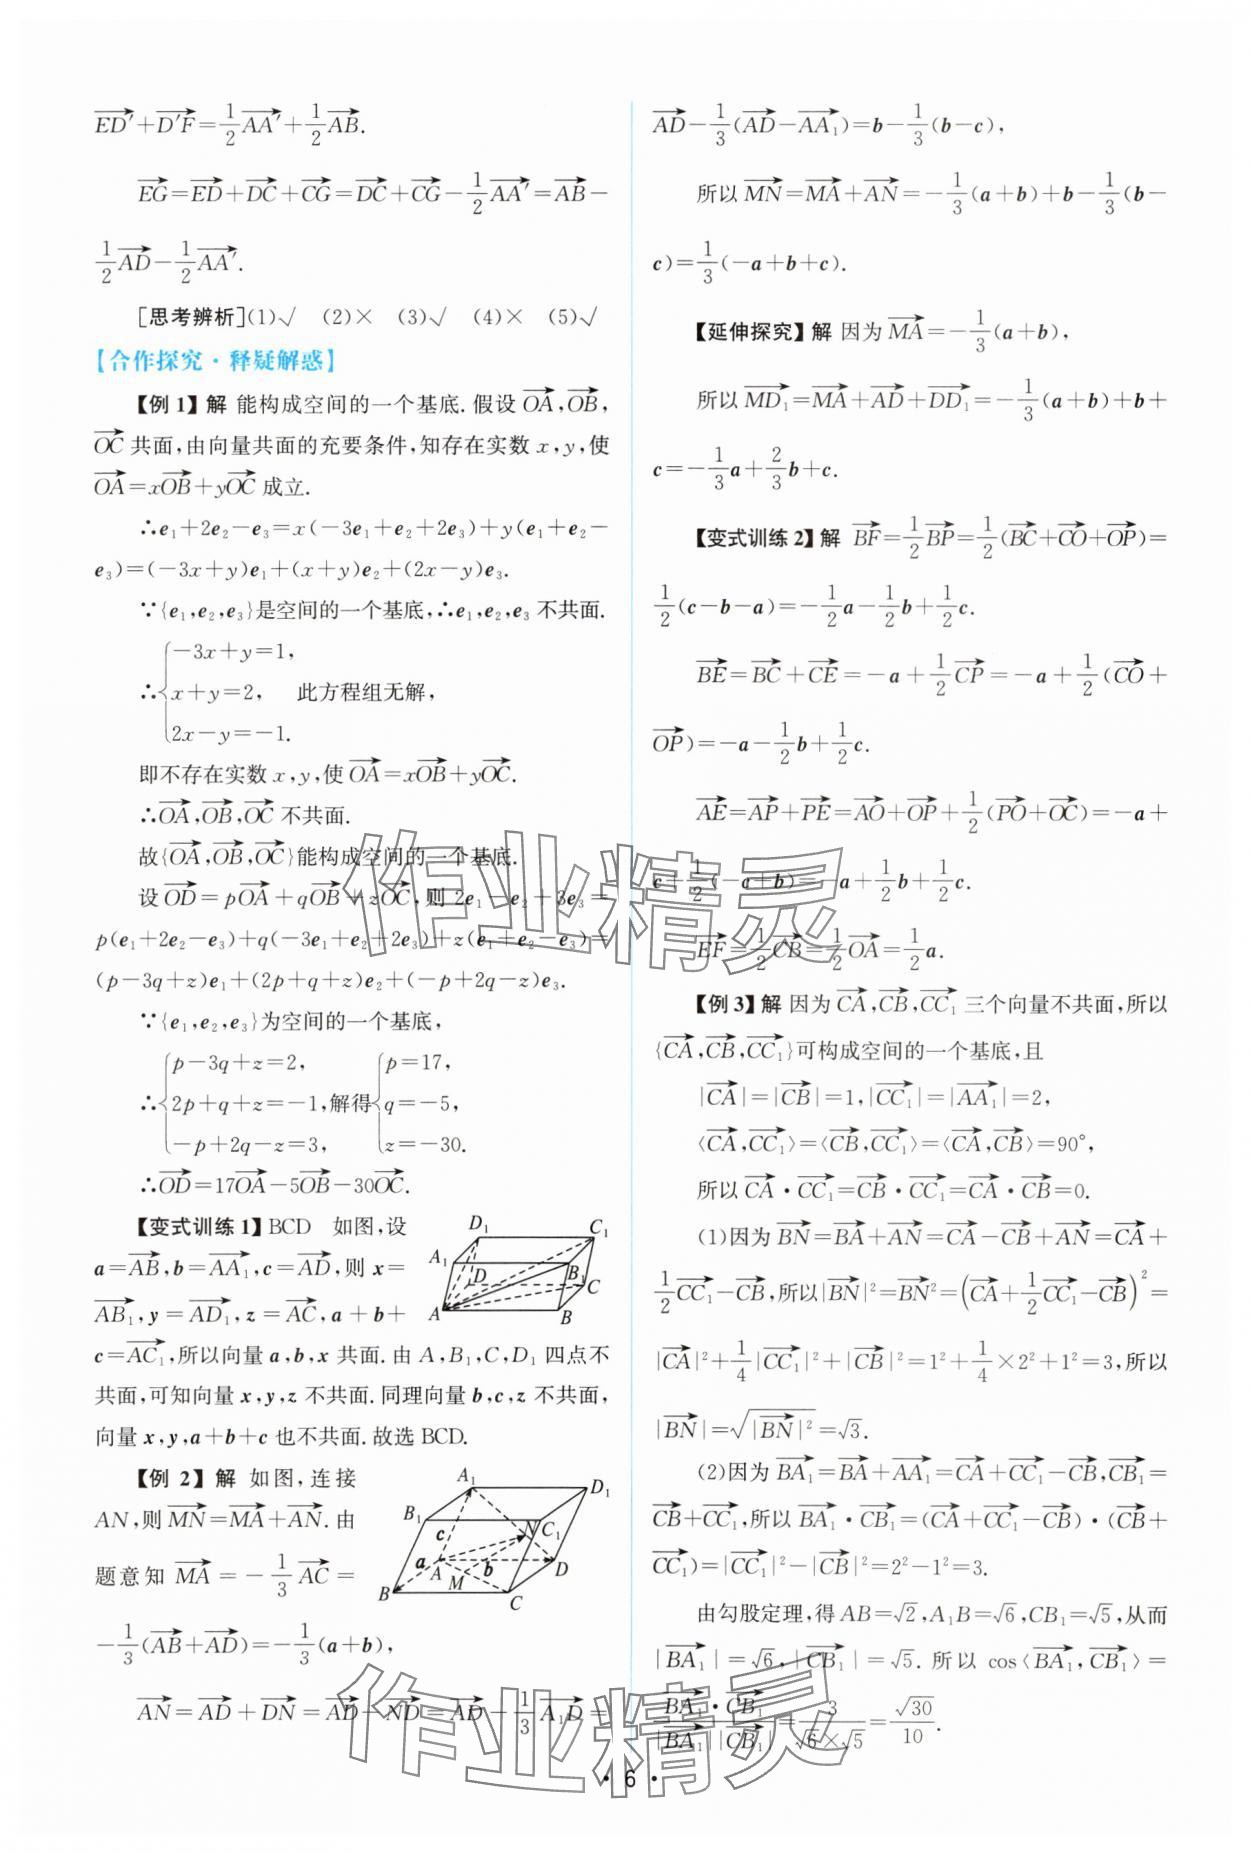 $\overrightarrow{ED'}+\overrightarrow{D'F}=\frac{1}{2}\overrightarrow{AA'}+\frac{1}{2}\overrightarrow{AB}$.
$\overrightarrow{EG}=\overrightarrow{ED}+\overrightarrow{DC}+\overrightarrow{CG}=\overrightarrow{DC}+\overrightarrow{CG}-\frac{1}{2}\overrightarrow{AA'}=\overrightarrow{AB}-$
$\frac{1}{2}\overrightarrow{AD}-\frac{1}{2}\overrightarrow{AA'}$.
[思考辨析](1)√ (2)× (3)√ (4)× (5)√
【合作探究·释疑解惑】
【例1】解 能构成空间的一个基底.假设$\overrightarrow{OA}$,$\overrightarrow{OB}$,
$\overrightarrow{OC}$共面,由向量共面的充要条件,知存在实数x,y,使
$\overrightarrow{OA}=x\overrightarrow{OB}+y\overrightarrow{OC}$成立.
∴$e_1+2e_2-e_3=x(-3e_1+e_2+2e_3)+y(e_1+e_2-$
$e_3)=(-3x+y)e_1+(x+y)e_2+(2x-y)e_3$.
∵{$e_1,e_2,e_3$}是空间的一个基底,∴$e_1,e_2,e_3$不共面.
-3x+y=1,
∴{x+y=2, 此方程组无解,
2x-y=-1.
即不存在实数x,y,使$\overrightarrow{OA}=x\overrightarrow{OB}+y\overrightarrow{OC}$.
∴$\overrightarrow{OA},\overrightarrow{OB},\overrightarrow{OC}$不共面.
故{$\overrightarrow{OA},\overrightarrow{OB},\overrightarrow{OC}$}能构成空间的一个基底.
设$\overrightarrow{OD}=p\overrightarrow{OA}+q\overrightarrow{OB}+z\overrightarrow{OC}$,则$2e_1-e_2+3e_3=$
$p(e_1+2e_2-e_3)+q(-3e_1+e_2+2e_3)+z(e_1+e_2-e_3)=$
$(p-3q+z)e_1+(2p+q+z)e_2+(-p+2q-z)e_3$.
∵{$e_1,e_2,e_3$}为空间的一个基底,
p-3q+z=2, p=17,
∴{2p+q+z=-1,解得{q=-5,
-p+2q-z=3, z=-30.
∴$\overrightarrow{OD}=17\overrightarrow{OA}-5\overrightarrow{OB}-30\overrightarrow{OC}$.
【变式训练1】BCD 如图,设
$a=\overrightarrow{AB},b=\overrightarrow{AA_1},c=\overrightarrow{AD}$,则$x=$
$\overrightarrow{AB_1},y=\overrightarrow{AD_1},z=\overrightarrow{AC},a+b+$
$c=\overrightarrow{AC_1}$,所以向量a,b,x共面.由A,B₁,C,D₁四点不
共面,可知向量x,y,z不共面.同理向量b,c,z不共面,
向量x,y,a+b+c也不共面.故选BCD.
D₁ C₁
A₁ D B₁ C
A B
【例2】解 如图,连接
AN,则$\overrightarrow{MN}=\overrightarrow{MA}+\overrightarrow{AN}$.由
题意知$\overrightarrow{MA}=-\frac{1}{3}\overrightarrow{AC}=$
$-\frac{1}{3}(\overrightarrow{AB}+\overrightarrow{AD})=-\frac{1}{3}(a+b)$,
A₁ D₁
B₁ N C₁
c
a A M b D
B C
$\overrightarrow{AN}=\overrightarrow{AD}+\overrightarrow{DN}=\overrightarrow{AD}-\overrightarrow{ND}=\overrightarrow{AD}-\frac{1}{3}\overrightarrow{A_1D}=$
$\overrightarrow{AD}-\frac{1}{3}(\overrightarrow{AD}-\overrightarrow{AA_1})=b-\frac{1}{3}(b-c)$,
所以$\overrightarrow{MN}=\overrightarrow{MA}+\overrightarrow{AN}=-\frac{1}{3}(a+b)+b-\frac{1}{3}(b-$
$c)=\frac{1}{3}(-a+b+c)$.
【延伸探究】解 因为$\overrightarrow{MA}=-\frac{1}{3}(a+b)$,
所以$\overrightarrow{MD_1}=\overrightarrow{MA}+\overrightarrow{AD}+\overrightarrow{DD_1}=-\frac{1}{3}(a+b)+b+$
$c=-\frac{1}{3}a+\frac{2}{3}b+c$.
【变式训练2】解 $\overrightarrow{BF}=\frac{1}{2}\overrightarrow{BP}=\frac{1}{2}(\overrightarrow{BC}+\overrightarrow{CO}+\overrightarrow{OP})=$
$\frac{1}{2}(c-b-a)=-\frac{1}{2}a-\frac{1}{2}b+\frac{1}{2}c$.
$\overrightarrow{BE}=\overrightarrow{BC}+\overrightarrow{CE}=-a+\frac{1}{2}\overrightarrow{CP}=-a+\frac{1}{2}(\overrightarrow{CO}+$
$\overrightarrow{OP})=-a-\frac{1}{2}b+\frac{1}{2}c$.
$\overrightarrow{AE}=\overrightarrow{AP}+\overrightarrow{PE}=\overrightarrow{AO}+\overrightarrow{OP}+\frac{1}{2}(\overrightarrow{PO}+\overrightarrow{OC})=-a+$
$c+\frac{1}{2}(-c+b)=-a+\frac{1}{2}b+\frac{1}{2}c$.
$\overrightarrow{EF}=\frac{1}{2}\overrightarrow{CB}=\frac{1}{2}\overrightarrow{OA}=\frac{1}{2}a$.
【例3】解 因为$\overrightarrow{CA},\overrightarrow{CB},\overrightarrow{CC_1}$三个向量不共面,所以
{$\overrightarrow{CA},\overrightarrow{CB},\overrightarrow{CC_1}$}可构成空间的一个基底,且
$|\overrightarrow{CA}|=|\overrightarrow{CB}|=1,|\overrightarrow{CC_1}|=|\overrightarrow{AA_1}|=2$,
$\langle\overrightarrow{CA},\overrightarrow{CC_1}\rangle=\langle\overrightarrow{CB},\overrightarrow{CC_1}\rangle=\langle\overrightarrow{CA},\overrightarrow{CB}\rangle=90°$,
所以$\overrightarrow{CA}·\overrightarrow{CC_1}=\overrightarrow{CB}·\overrightarrow{CC_1}=\overrightarrow{CA}·\overrightarrow{CB}=0$.
(1)因为$\overrightarrow{BN}=\overrightarrow{BA}+\overrightarrow{AN}=\overrightarrow{CA}-\overrightarrow{CB}+\overrightarrow{AN}=\overrightarrow{CA}+$
$\frac{1}{2}\overrightarrow{CC_1}-\overrightarrow{CB}$,所以$|\overrightarrow{BN}|^2=\overrightarrow{BN}^2=\left(\overrightarrow{CA}+\frac{1}{2}\overrightarrow{CC_1}-\overrightarrow{CB}\right)^2=$
$|\overrightarrow{CA}|^2+\frac{1}{4}|\overrightarrow{CC_1}|^2+|\overrightarrow{CB}|^2=1^2+\frac{1}{4}×2^2+1^2=3$,所以
$|\overrightarrow{BN}|=\sqrt{|\overrightarrow{BN}|^2}=\sqrt{3}$.
(2)因为$\overrightarrow{BA_1}=\overrightarrow{BA}+\overrightarrow{AA_1}=\overrightarrow{CA}+\overrightarrow{CC_1}-\overrightarrow{CB},\overrightarrow{CB_1}=$
$\overrightarrow{CB}+\overrightarrow{CC_1}$,所以$\overrightarrow{BA_1}·\overrightarrow{CB_1}=(\overrightarrow{CA}+\overrightarrow{CC_1}-\overrightarrow{CB})·(\overrightarrow{CB}+$
$\overrightarrow{CC_1})=|\overrightarrow{CC_1}|^2-|\overrightarrow{CB}|^2=2^2-1^2=3$.
由勾股定理,得$AB=\sqrt{2},A_1B=\sqrt{6},CB_1=\sqrt{5}$,从而
$|\overrightarrow{BA_1}|=\sqrt{6},|\overrightarrow{CB_1}|=\sqrt{5}$.所以$\cos\langle\overrightarrow{BA_1},\overrightarrow{CB_1}\rangle=$
$\frac{\overrightarrow{BA_1}·\overrightarrow{CB_1}}{|\overrightarrow{BA_1}||\overrightarrow{CB_1}|}=\frac{3}{\sqrt{6}×\sqrt{5}}=\frac{\sqrt{30}}{10}$.
作业精灵
作业精灵
·6·